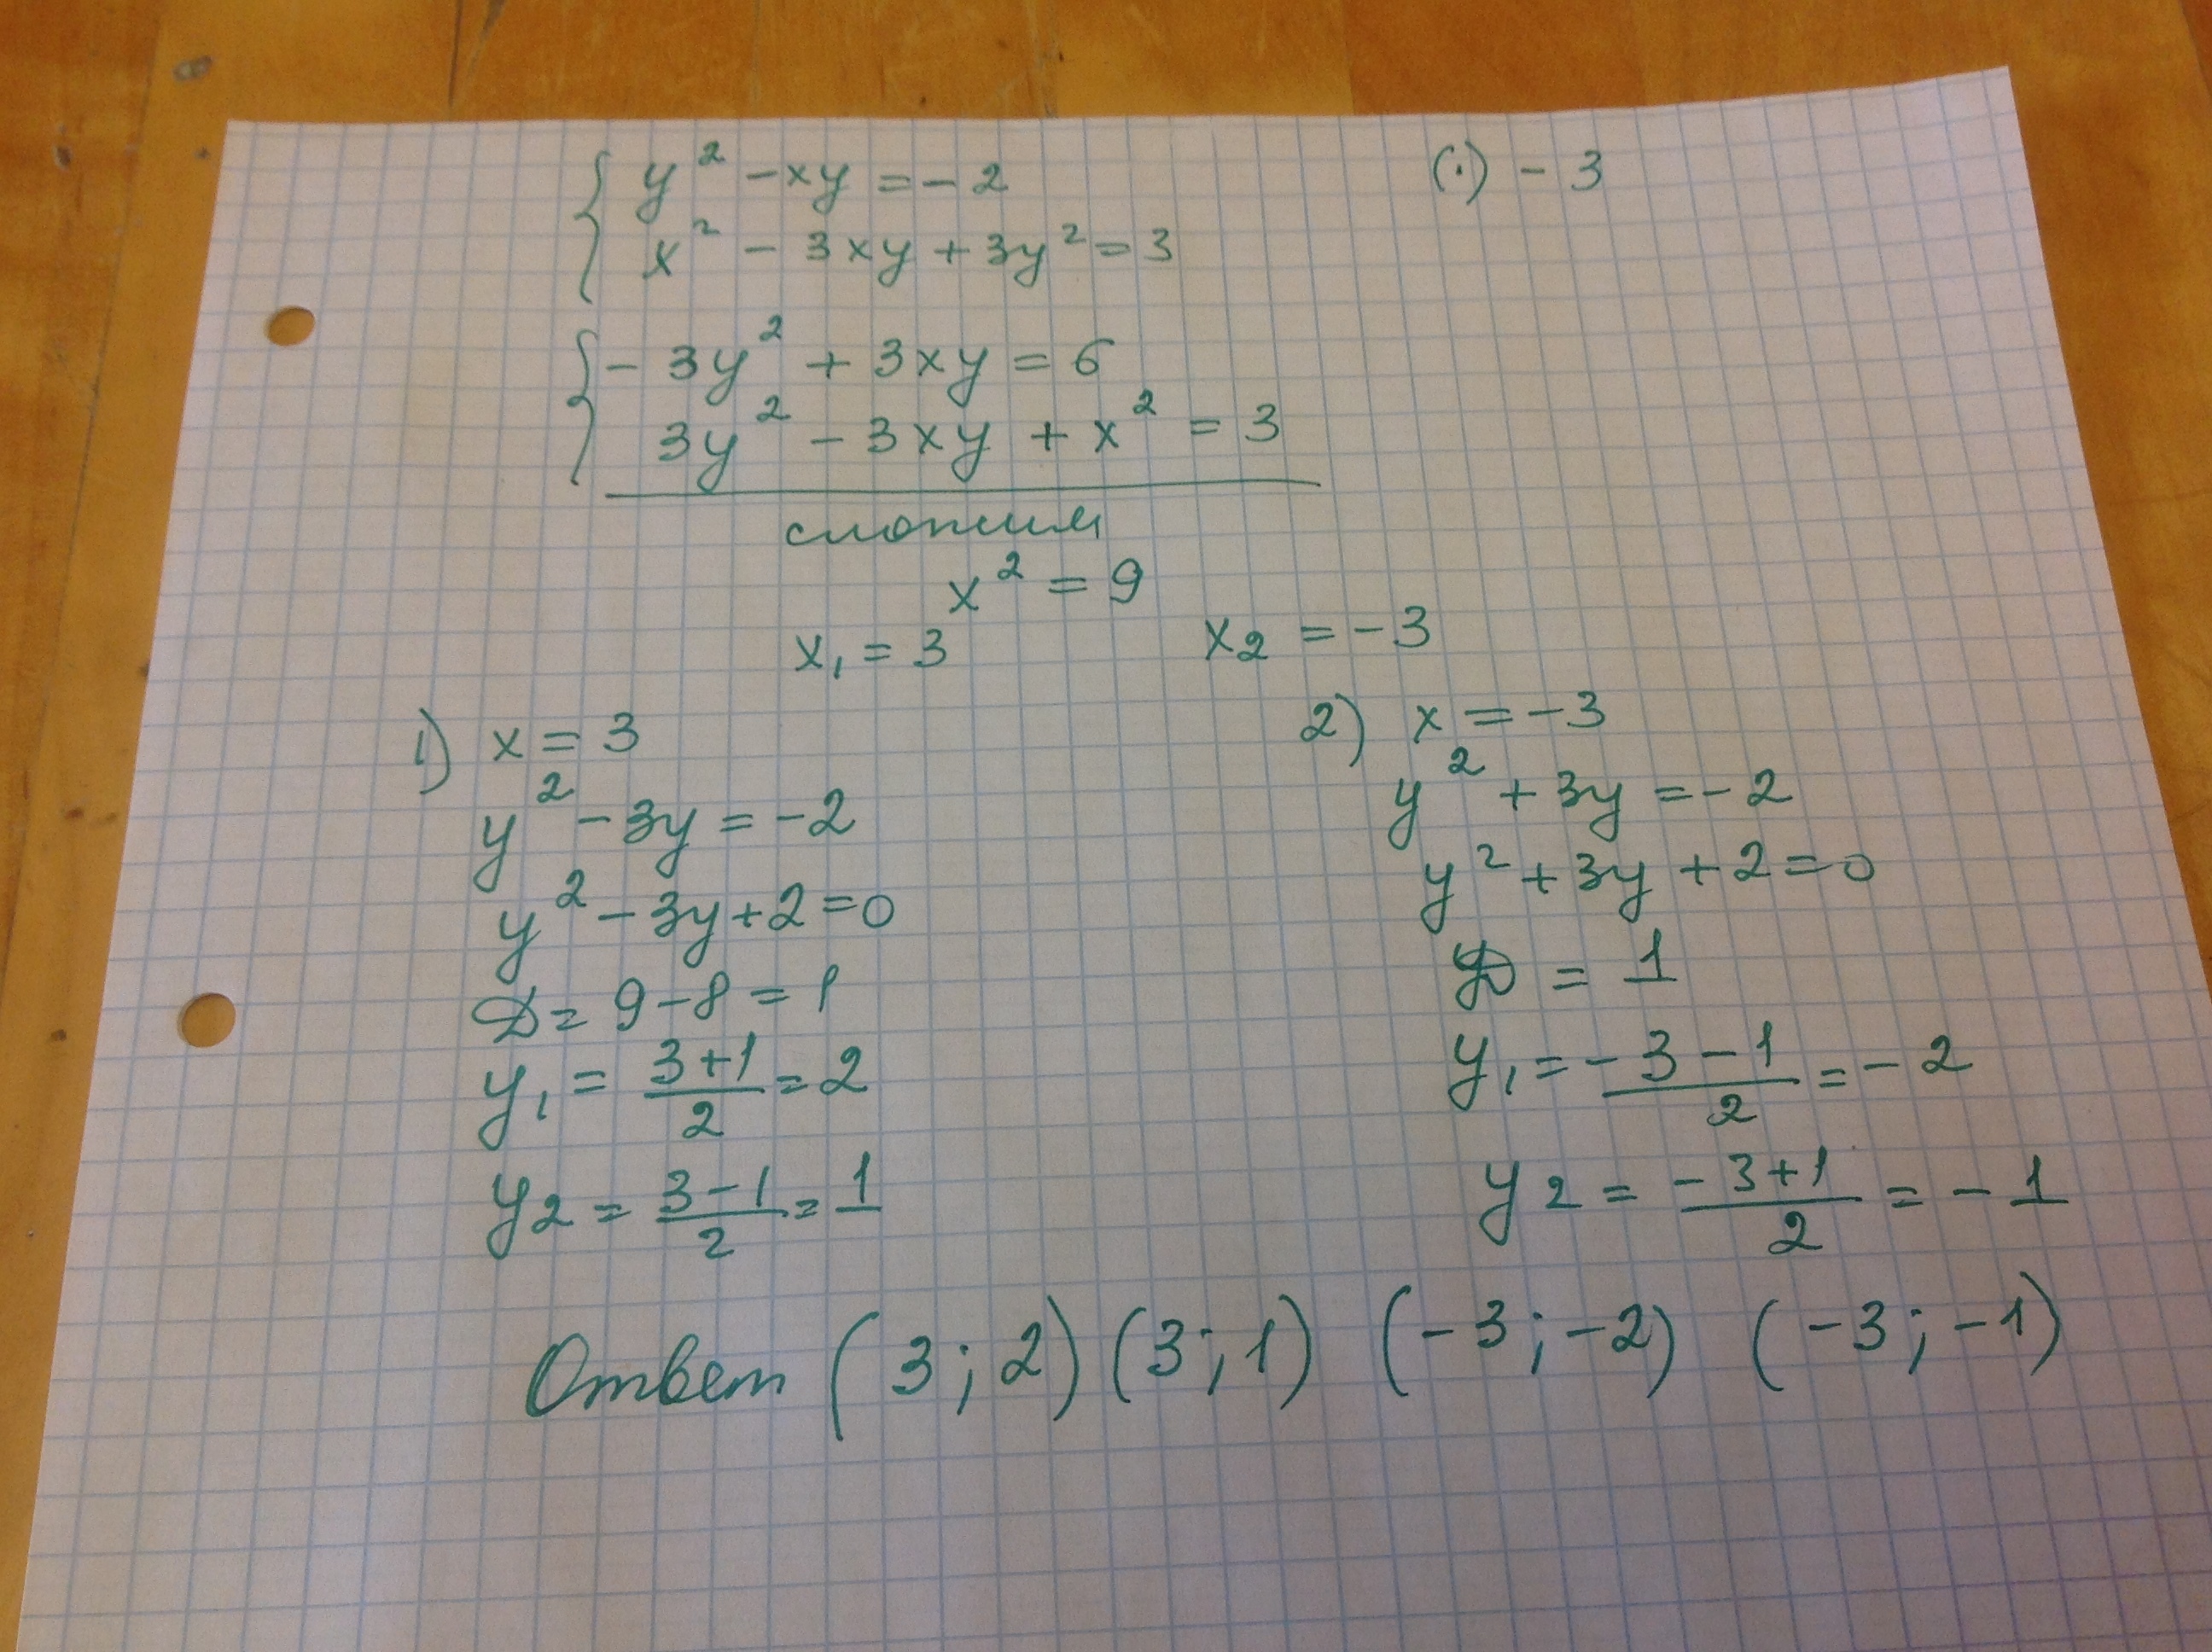 y² - xy = -2 (·) - 3
x² - 3xy + 3y² = 3
-3y² + 3xy = 6
3y² - 3xy + x² = 3
сложим
x² = 9
x₁ = 3 x₂ = -3
1) x = 3
y² - 3y = -2
y² - 3y + 2 = 0
D = 9 - 8 = 1
y₁ = (3+1)/2 = 2
y₂ = (3-1)/2 = 1
2) x = -3
y² + 3y = -2
y² + 3y + 2 = 0
D = 1
y₁ = (-3-1)/2 = -2
y₂ = (-3+1)/2 = -1
Ответ (3; 2) (3; 1) (-3; -2) (-3; -1)